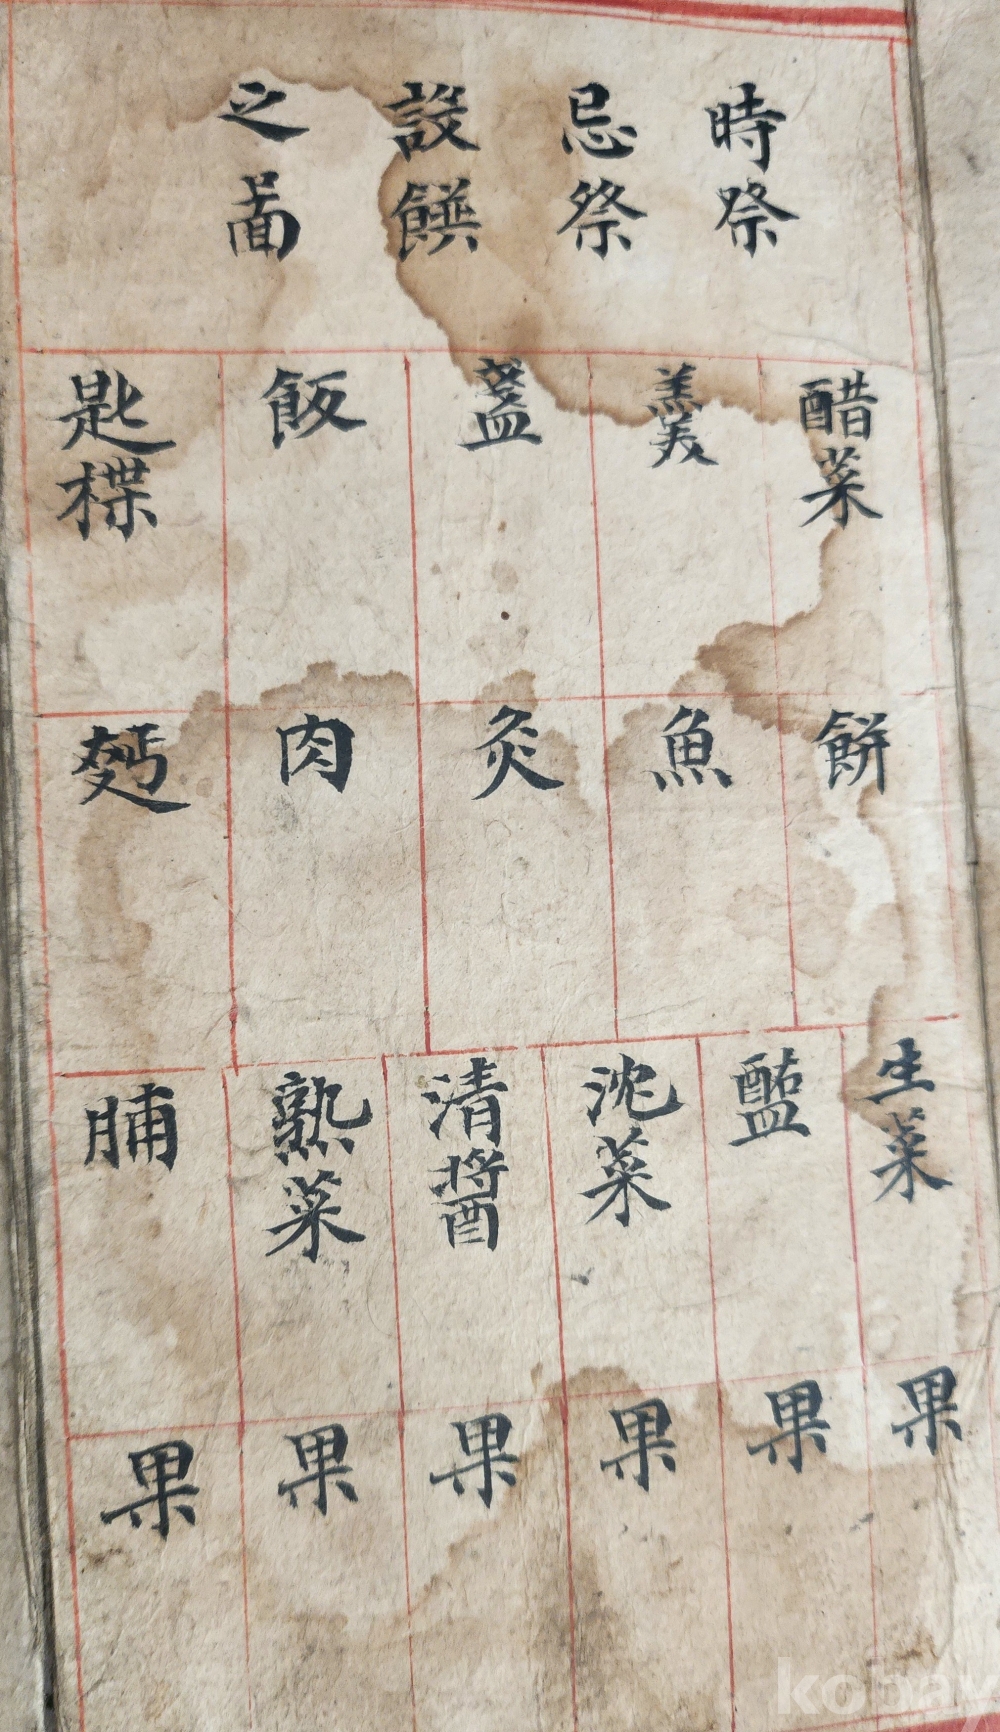 時祭
忌祭
設饌
之啚
醋菜
羹
盞
飯
匙楪
餠
魚
炙
肉
麪
生菜
醢
沈菜
清醬
熟菜
脯
果
果
果
果
果
果
kobay